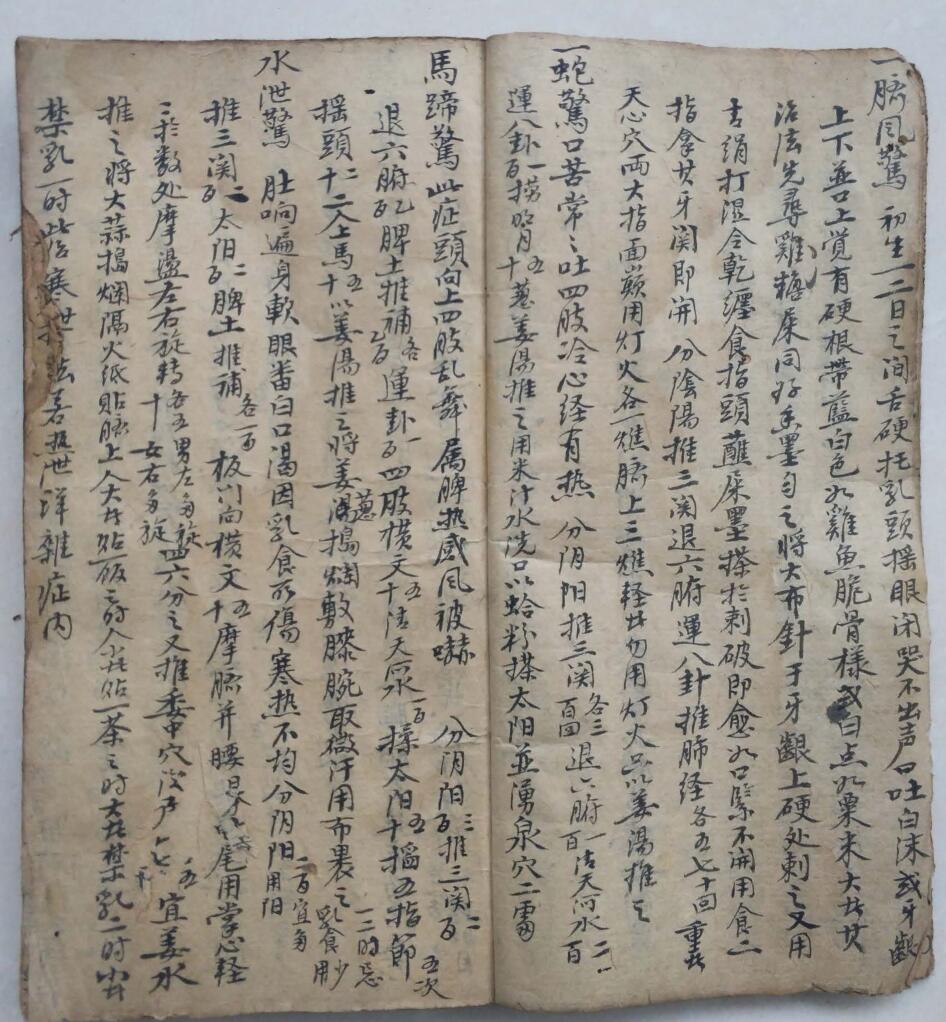 一臍风驚 初生一二日之间舌硬扥乳頭揺眼闭哭不出声口吐白沫或牙齦
上下並口上覚有硬根带藍白色如雞魚脆骨樣或白点如粟米大者其
治法先尋雞糞屎同好香墨匀之将大布針于牙齦上硬处刺之又用
青絹打湿令乾纏食指頭蘸屎墨搽於刺破即愈如口緊不開用食二
指拿其牙関即开 分陰陽推三関退六腑運八卦推肺経各五七十回 重者
天心穴两大指面顖用灯火各一燋臍上三燋軽者勿用灯火只以姜湯推之
一蛇驚口苦常之吐四肢冷心経有热 分阴阳推三関各三百回退六腑一百清天河水二百
運八卦一百捞明月五十葱姜湯推之用米汁水洗口以蛤粉搽太阳並湧泉穴二處
馬蹄驚此症頭向上四肢乱舞属脾热感风被嚇 分阴阳三百推三関二百
退六腑百脾土推補各百運卦一百四股横文五十清天泉一百揉太阳五十掐五指節五次
揺頭二十二人上馬五十以姜湯推之将姜葱搗爛敷膝腕取微汗用布裹之乳食少用一二时忌
水泄驚 肚响遍身軟眼番白口渴因乳食所傷寒热不均分阴阳二百宜多用阳
推三関二百太阳二百脾土推補各一百 板门向横文五十摩臍并腰是以尾用掌心軽
之於数处摩盪左右旋转各五十男左多旋女右多旋四六分之又推委中穴後户 五 宜姜水
推之将大蒜搗爛隔火纸贴臍上大者贴一飯之时小者贴一茶之时大者禁乳二时小者
禁乳一时此治寒泄 法若热泄詳雜症内